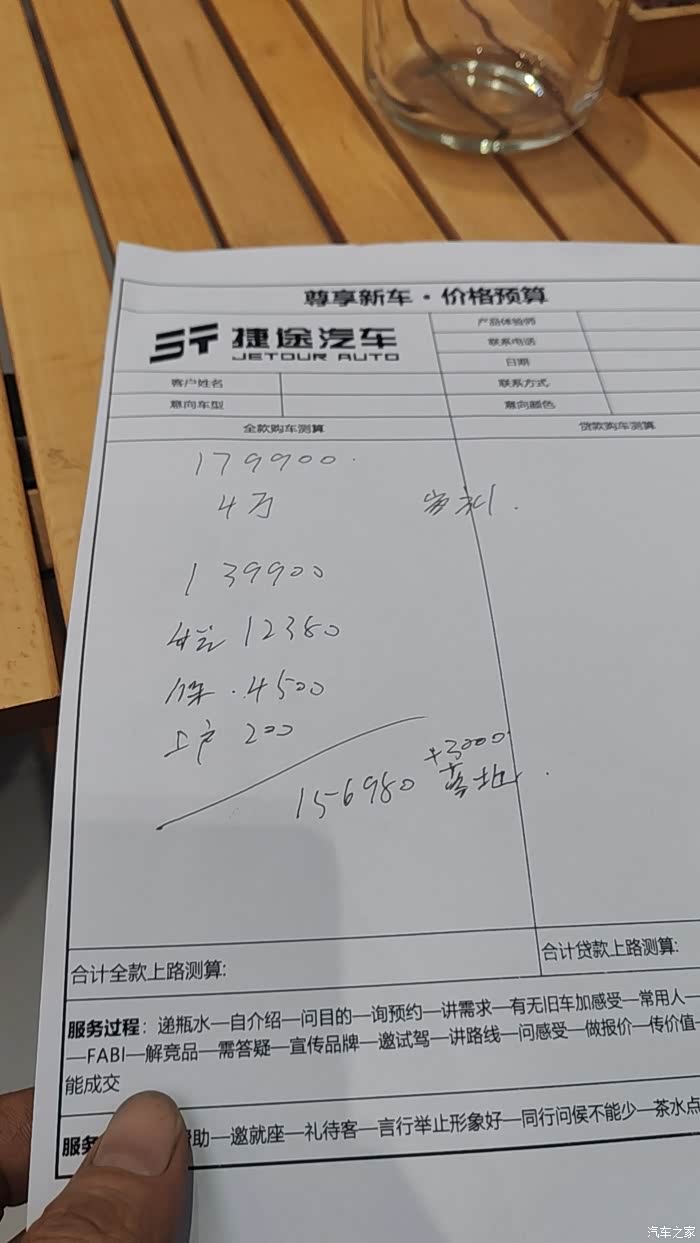 尊享新车·价格预算
捷途汽车
JETOUR AUTO
产品体验师
联系电话
日期
客户姓名
联系方式
意向车型
意向颜色
全款购车测算
贷款购车测算
179900.
4万
139900
12380
保.4500
上户 200
+3000
156980
合计全款上路测算:
合计贷款上路测算:
服务过程：递瓶水—自介绍—问目的—询预约—讲需求—有无旧车加感受—常用人—
—FABI—解竞品—需答疑—宣传品牌—邀试驾—讲路线—问感受—做报价—传价值—
能成交
服务 帮助—邀就座—礼待客—言行举止形象好—同行问侯不能少—茶水点
汽车之家